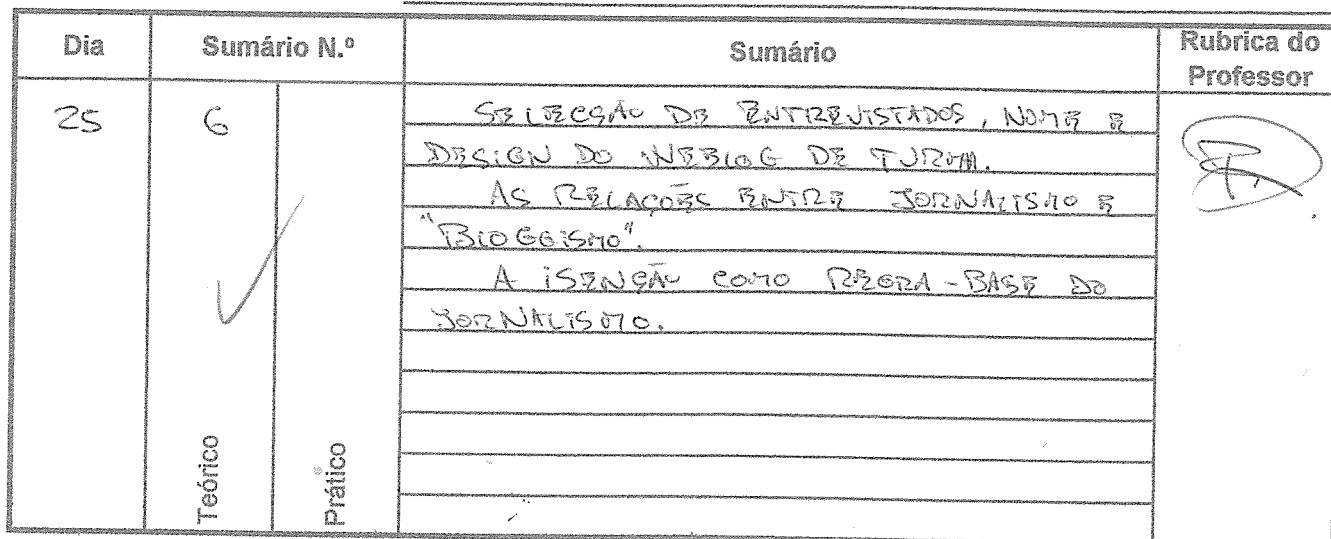 Dia Sumário N.º Sumário Rubrica do Professor
25 6
SELECÇÃO DE ENTREVISTADOS, NOME E
DESIGN DO WEBLOG DE TURMA.
AS RELAÇÕES ENTRE JORNALISMO E
"BLOGGISMO".
A ISENÇÃO COMO REGRA-BASE DO
JORNALISMO.
Teórico
Prático